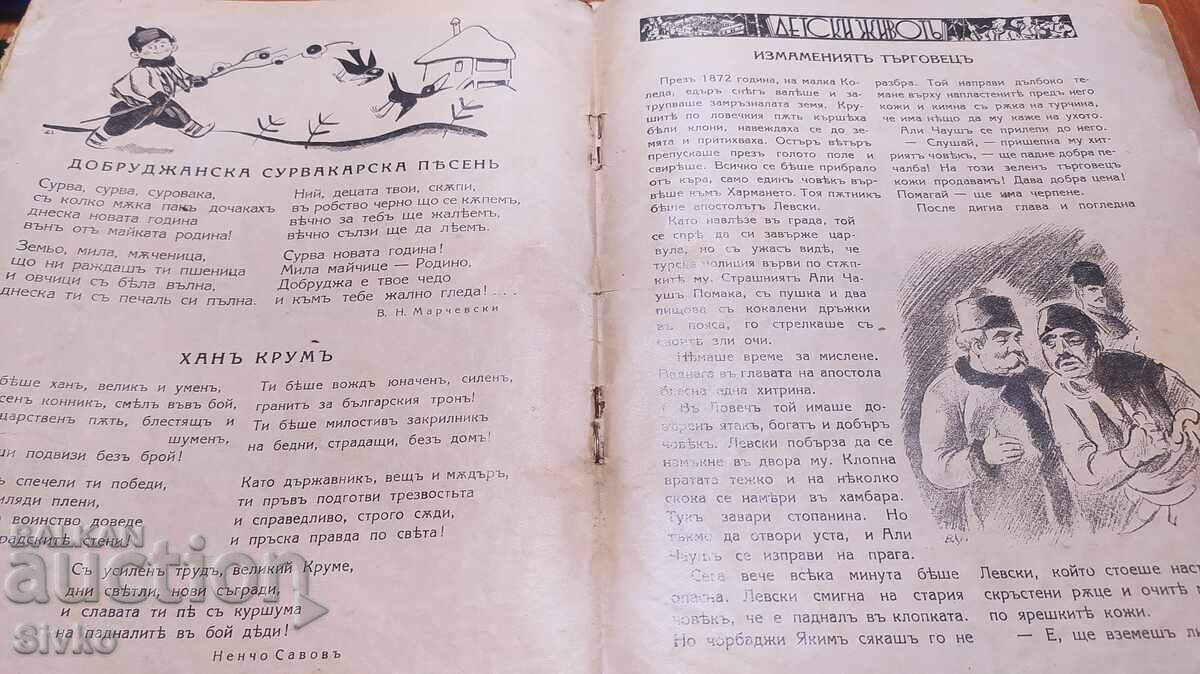 ДОБРУДЖАНСКА СУРВАКАРСКА ПѢСЕНЬ
Сурва, сурва, суровака,
съ колко мѫка пакъ дочакахъ
днеска новата година
вънъ отъ майката родина!
Земьо, мила, мѫченица,
що ни раждашъ ти пшеница
и овчици съ бѣла вълна,
днеска ти съ печаль си пълна.
Ний, децата твои, скѫпи,
въ робство черно що се кѫпемъ,
вѣчно за тебъ ще жалѣемъ,
вѣчно сълзи ще да лѣемъ.
Сурва новата година!
Мила майчице — Родино,
Добруджа е твое чедо
и къмъ тебе жално гледа! . . .
В. Н. Марчевски
ХАНЪ КРУМЪ
бѣше ханъ, великъ и уменъ,
сенъ конникъ, смѣлъ въвъ бой,
царственъ пѫть, блестящъ и
шуменъ,
щи подвизи безъ брой!
ъ спечели ти победи,
иляди плени,
воинство доведе
радскитѣ стени!
Ти бѣше вождъ юначенъ, силенъ,
гранитъ за българския тронъ!
Ти бѣше милостивъ закрилникъ
на бедни, страдащи, безъ домъ!
Като държавникъ, вещъ и мѫдъръ,
ти пръвъ подготви трезвостьта
и справедливо, строго сѫди,
и пръска правда по свѣта!
Съ усиленъ трудъ, великий Круме,
дни свѣтли, нови съгради,
и славата ти пѣ съ куршума
на падналитѣ въ бой дѣди!
Ненчо Савовъ
ДЕТСКИ ЖИВОТЪ
ИЗМАМЕНИЯТЪ ТЪРГОВЕЦЪ
Презъ 1872 година, на малка Ко-
леда, едъръ снѣгъ валѣше и за-
трупваше замръзналата земя. Кру-
шитѣ по ловечкия пѫть кършѣха
бѣли клони, навеждаха се до зе-
мята и притихваха. Остъръ вѣтъръ
препускаше презъ голото поле и
свирѣше. Всичко се бѣше прибрало
отъ къра, само единъ човѣкъ вър-
вѣше къмъ Хармането. Тоя пѫтникъ
бѣше апостолътъ Левски.
Като навлѣзе въ града, той
се спрѣ да си завърже цар-
вула, но съ ужасъ видѣ, че
турска полиция върви по стѫп-
китѣ му. Страшниятъ Али Ча-
ушъ Помака, съ пушка и два
пищова съ кокалени дръжки
въ пояса, го стрелкаше съ
своитѣ зли очи.
Нѣмаше време за мислене.
Веднага въ главата на апостола
блесна една хитрина.
Въ Ловечъ той имаше до-
вѣренъ ятакъ, богатъ и добъръ
човѣкъ. Левски побърза да се
намъкне въ двора му. Клопна
вратата тежко и на нѣколко
скока се намѣри въ хамбара.
Тукъ завари стопанина. Но
тъкмо да отвори уста, и Али
Чаушъ се изправи на прага.
Сега вече всѣка минута бѣше
опасна. Левски смигна на стария
човѣкъ, че е падналъ въ клопката.
Но чорбаджи Якимъ сякашъ го не
разбра. Той направи дълбоко те-
мане върху напластенитѣ предъ него
кожи и кимна съ рѫка на турчина,
че има нѣщо да му каже на ухото.
Али Чаушъ се прилепи до него.
— Слушай, — пришепна му хит-
риятъ човѣкъ, — ще падне добра пе-
чалба! На този зеленъ търговецъ
кожи продавамъ! Дава добра цена!
Помагай — ще има черпене.
После дигна глава и погледна
Левски, който стоеше наст
скръстени рѫце и очитѣ
по ярешкитѣ кожи.
— Е, ще вземешъ ли
BALKAN
auction
Sivko